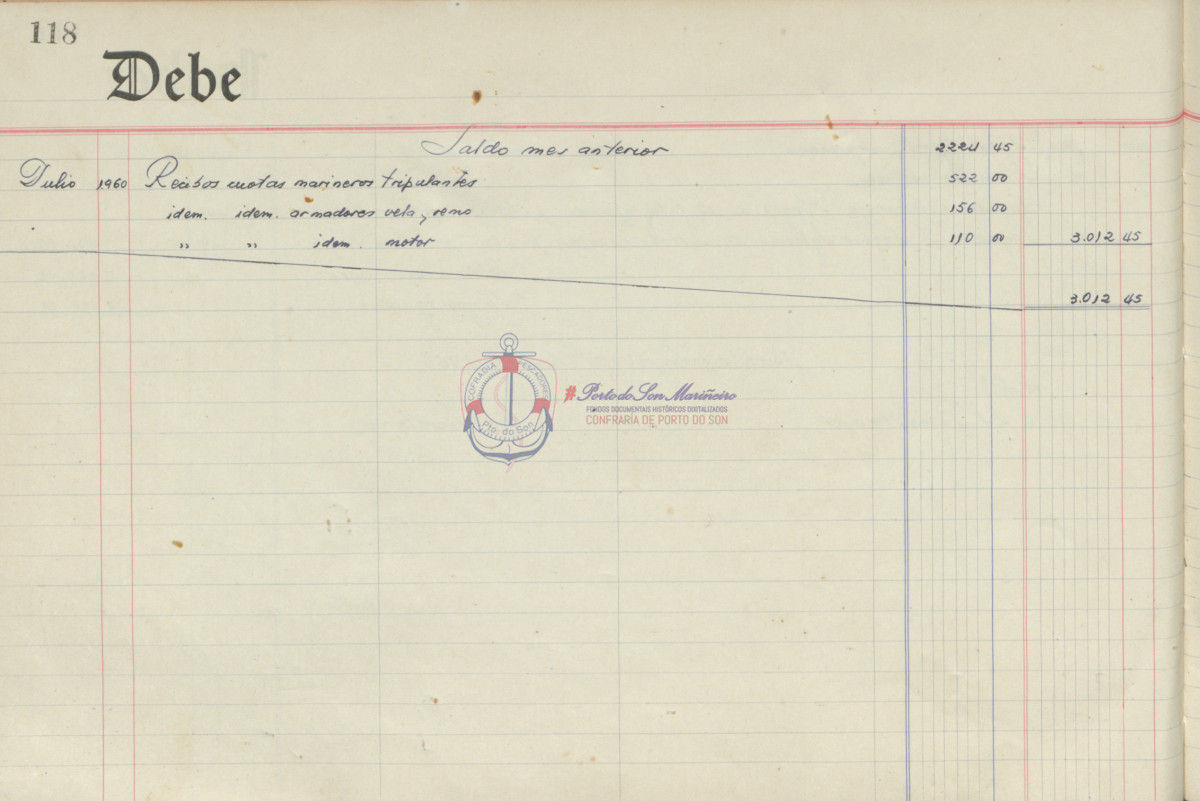 118
Debe
Saldo mes anterior 2224 45
Julio 1960 Recibos cuotas marineros tripulantes 522 00
idem. idem. armadores vela y remo 156 00
" " idem. motor 110 00 3.012 45
3.012 45
COFRADIA PESCADORES
Pto. do Son
#Porto do Son Mariñeiro
FONDOS DOCUMENTAIS HISTÓRICOS DIGITALIZADOS
CONFRARÍA DE PORTO DO SON